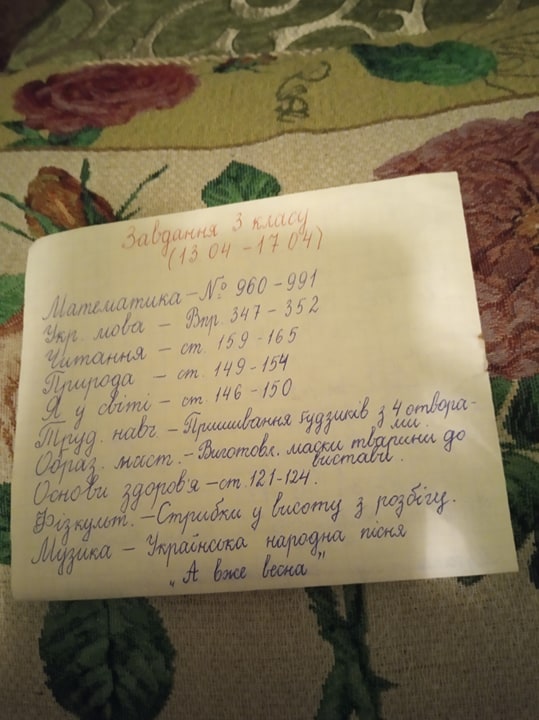 Завдання 3 класу
(13 04 - 17 04)
Математика - № 960 - 991
Укр. мова - Впр. 347 - 352
Читання - ст. 159 - 165
Природа - ст. 149 - 154
Я у світі - ст. 146 - 150
Труд. навч. - Пришивання ґудзиків з 4 отвора-
ми.
Образ. мист. - Виготовл. маски тварини до
вистави.
Основи здоров'я - ст. 121-124.
Фізкульт. - Стрибки у висоту з розбігу.
Музика - Українська народна пісня
"А вже весна"